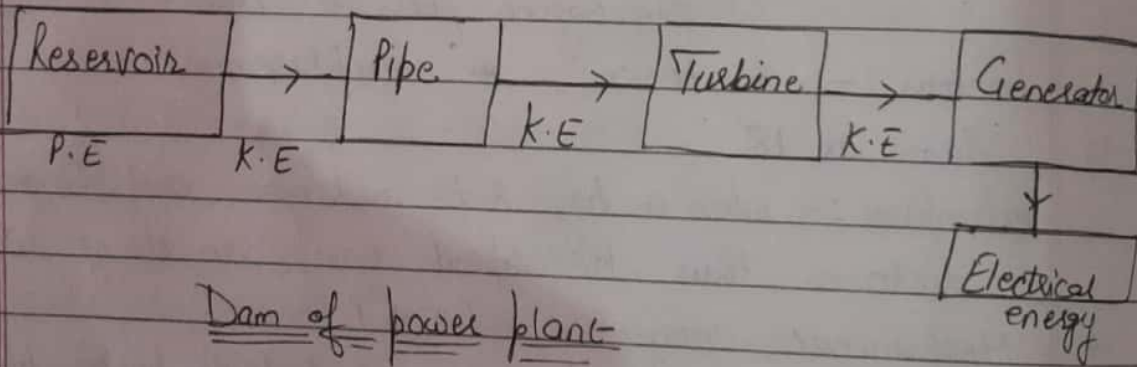 Reservoir
Pipe
Turbine
Generator
P.E
K.E
K.E
K.E
Electrical
energy
Dam of power plant